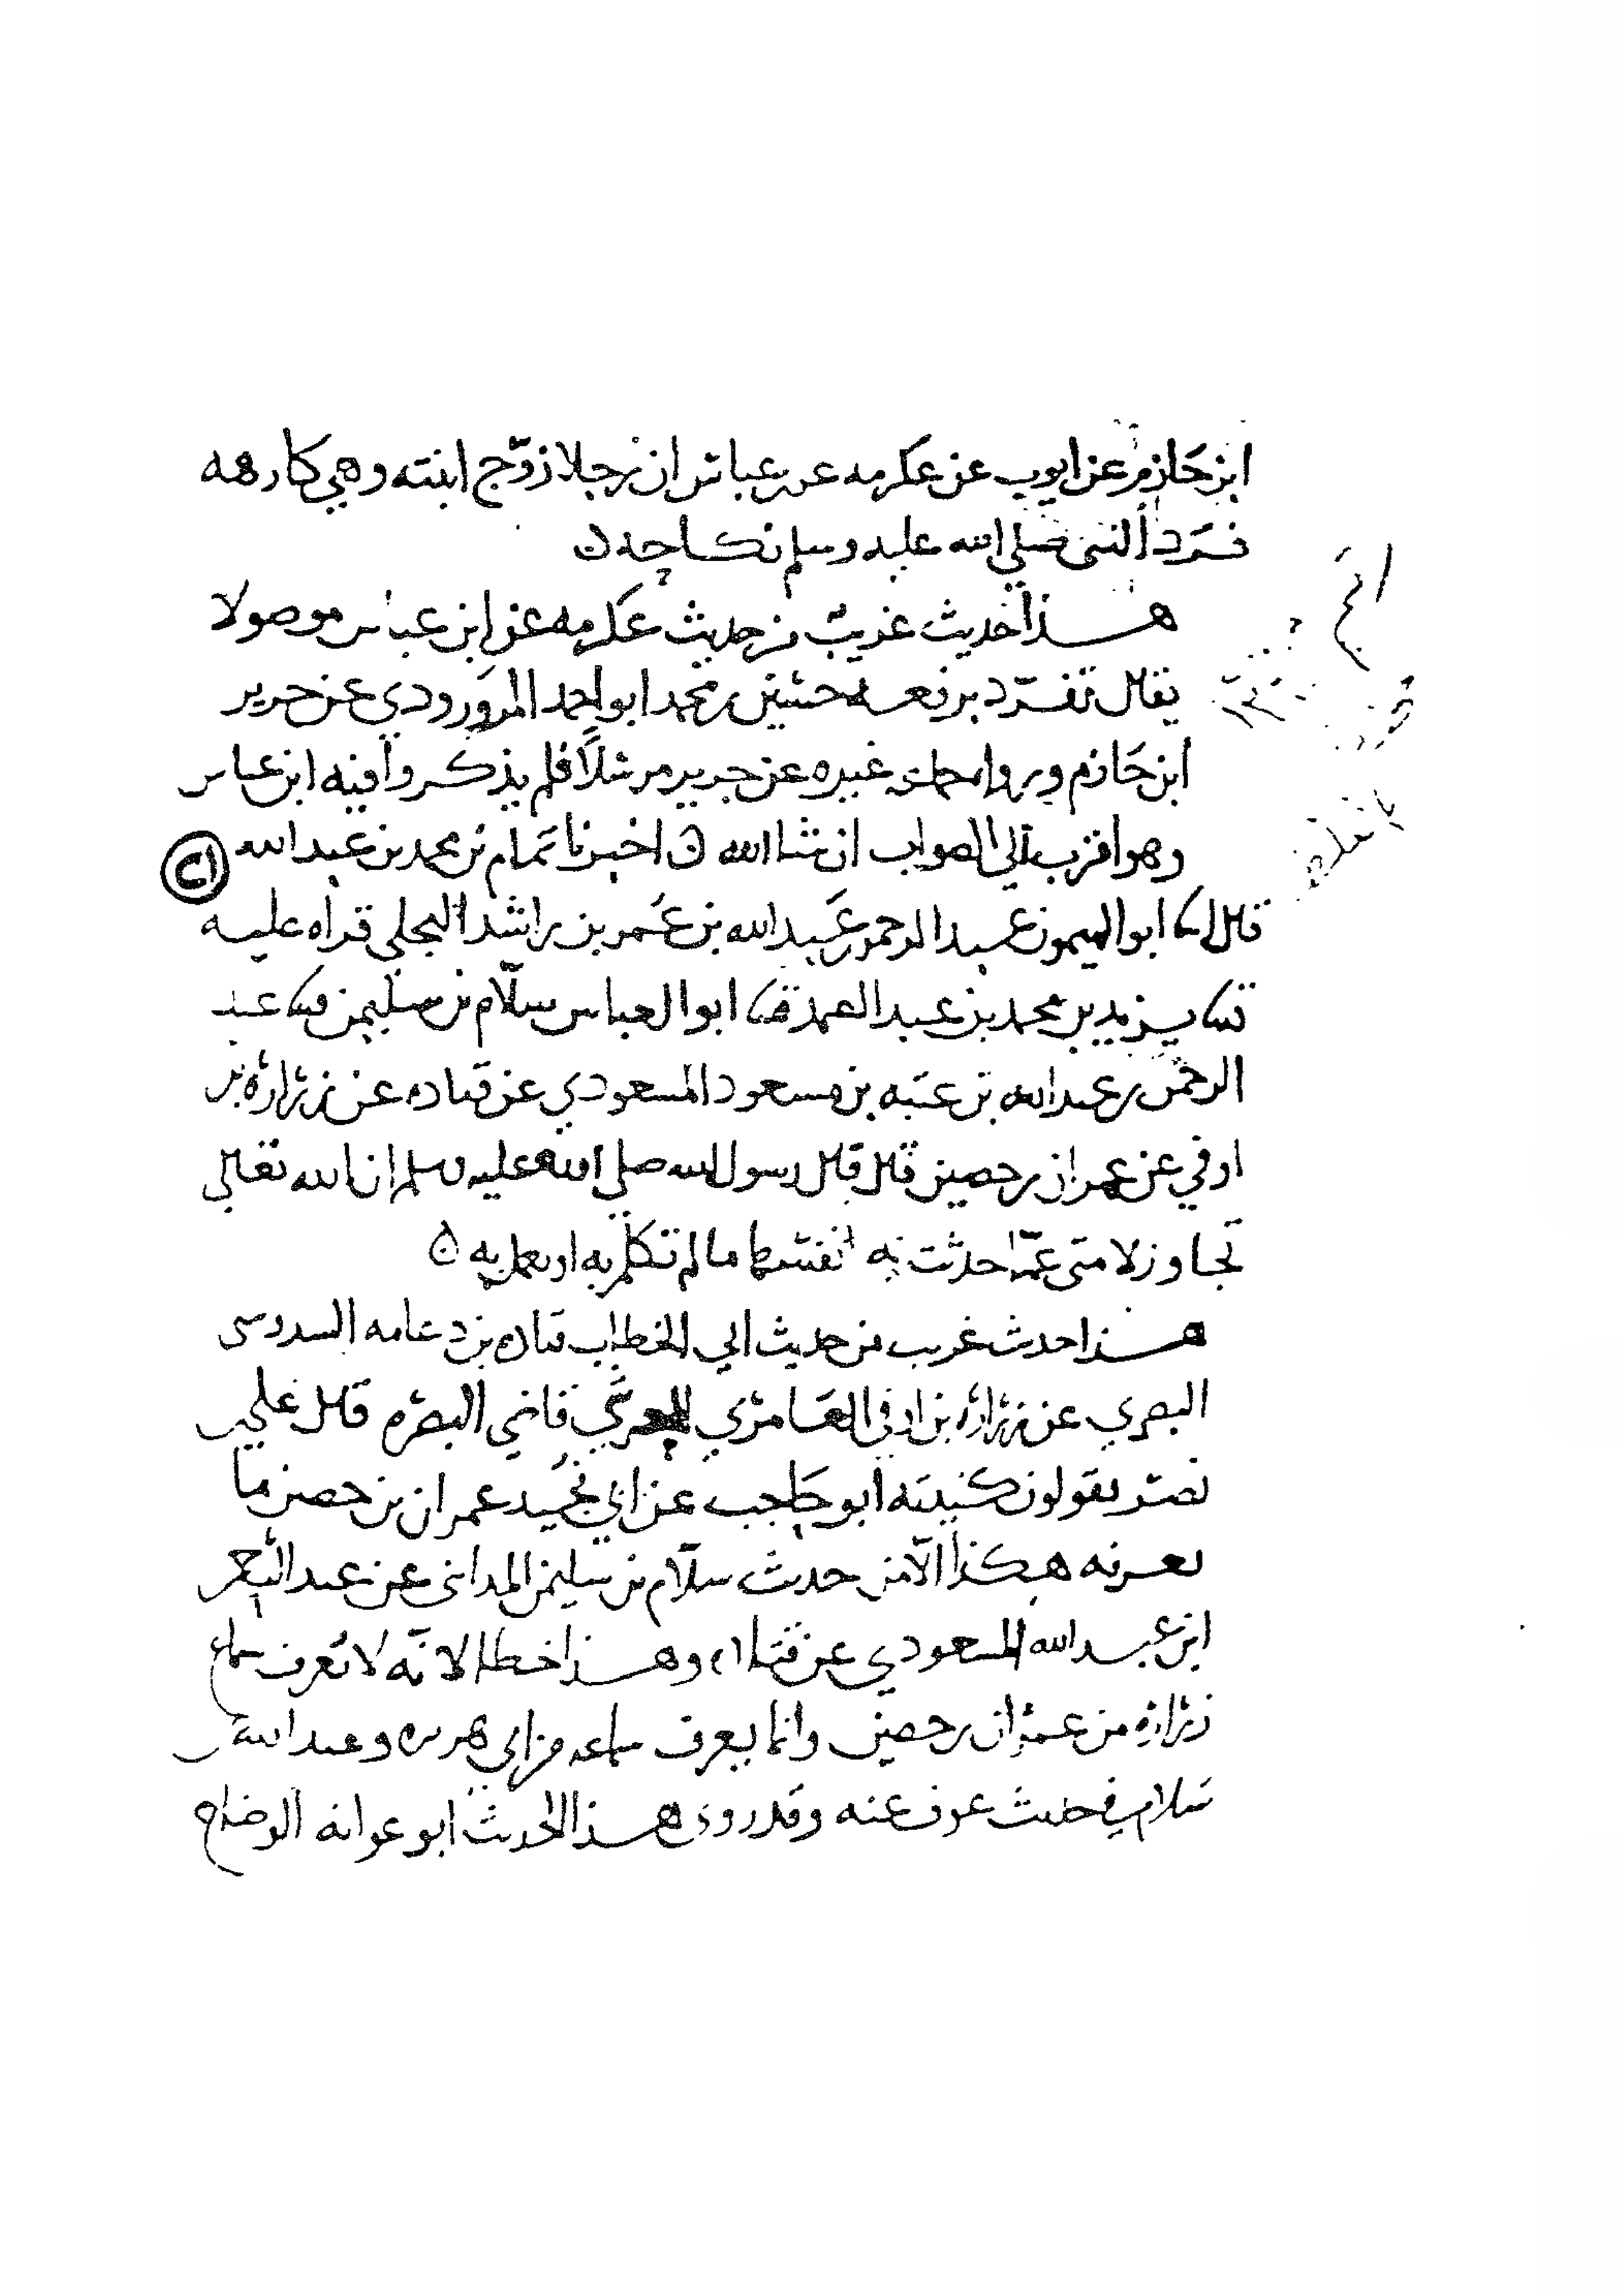 ابن حازم عن ايوب عن عكرمه عن بن عباس ان رجلا زوّج ابنته وهي كارهه
فرد النبي صلي الله عليه وسلم نكاحه ن
هذا حديث غريب من حديث عكرمه عن ابن عباس موصولا
يقال تفرّد برفعه حسين بن محمد ابو احمد المروروذي عن جرير
ابن حازم ورواه غيره عن جرير مرسلًا فلم يذكروا فيه ابن عباس
وهو اقرب الي الصواب ان شا الله ن اخبرنا تمام بن محمد بن عبد الله
قال ابو الميمون عبد الرحمن بن عبد الله بن عمر بن راشد البجلي قراه عليه
ثنا يزيد بن محمد بن عبد الصمد ثنا ابو العباس سلّام بن سليمن ثنا عبد
الرحمن بن عبد الله بن عتبه بن مسعود المسعودي عن قتاده عن زراره بن
اوفي عن عمران بن حصين قال قال رسول الله صلي الله عليه وسلم ان الله تعالي
تجاوز لامتي عمّا حدثت به انفسها ما لم تكلم به او يعمل به ن
هذا حديث غريب من حديث ابي الخطاب قتاده بن دعامه السدوسي
البصري عن زراره بن اوفي العامري قاضي البصره قال علي بن
نصر يقولون كنيته ابو حاجب عن ابي نجيد عمران بن حصين ما
نعرفه هكذا الّا من حديث سلّام بن سليمن المدائني عن عبد الرحمن
ابن عبد الله المسعودي عن قتاده وهذا خطا لانّه لا نعرف سماع
زراره من عمران بن حصين وانما يعرف سماعه من ابي هريره وعبد الله بن
سلام في حديث عوف عنه وقد روي هذا الحديث ابو عوانه الوضاح